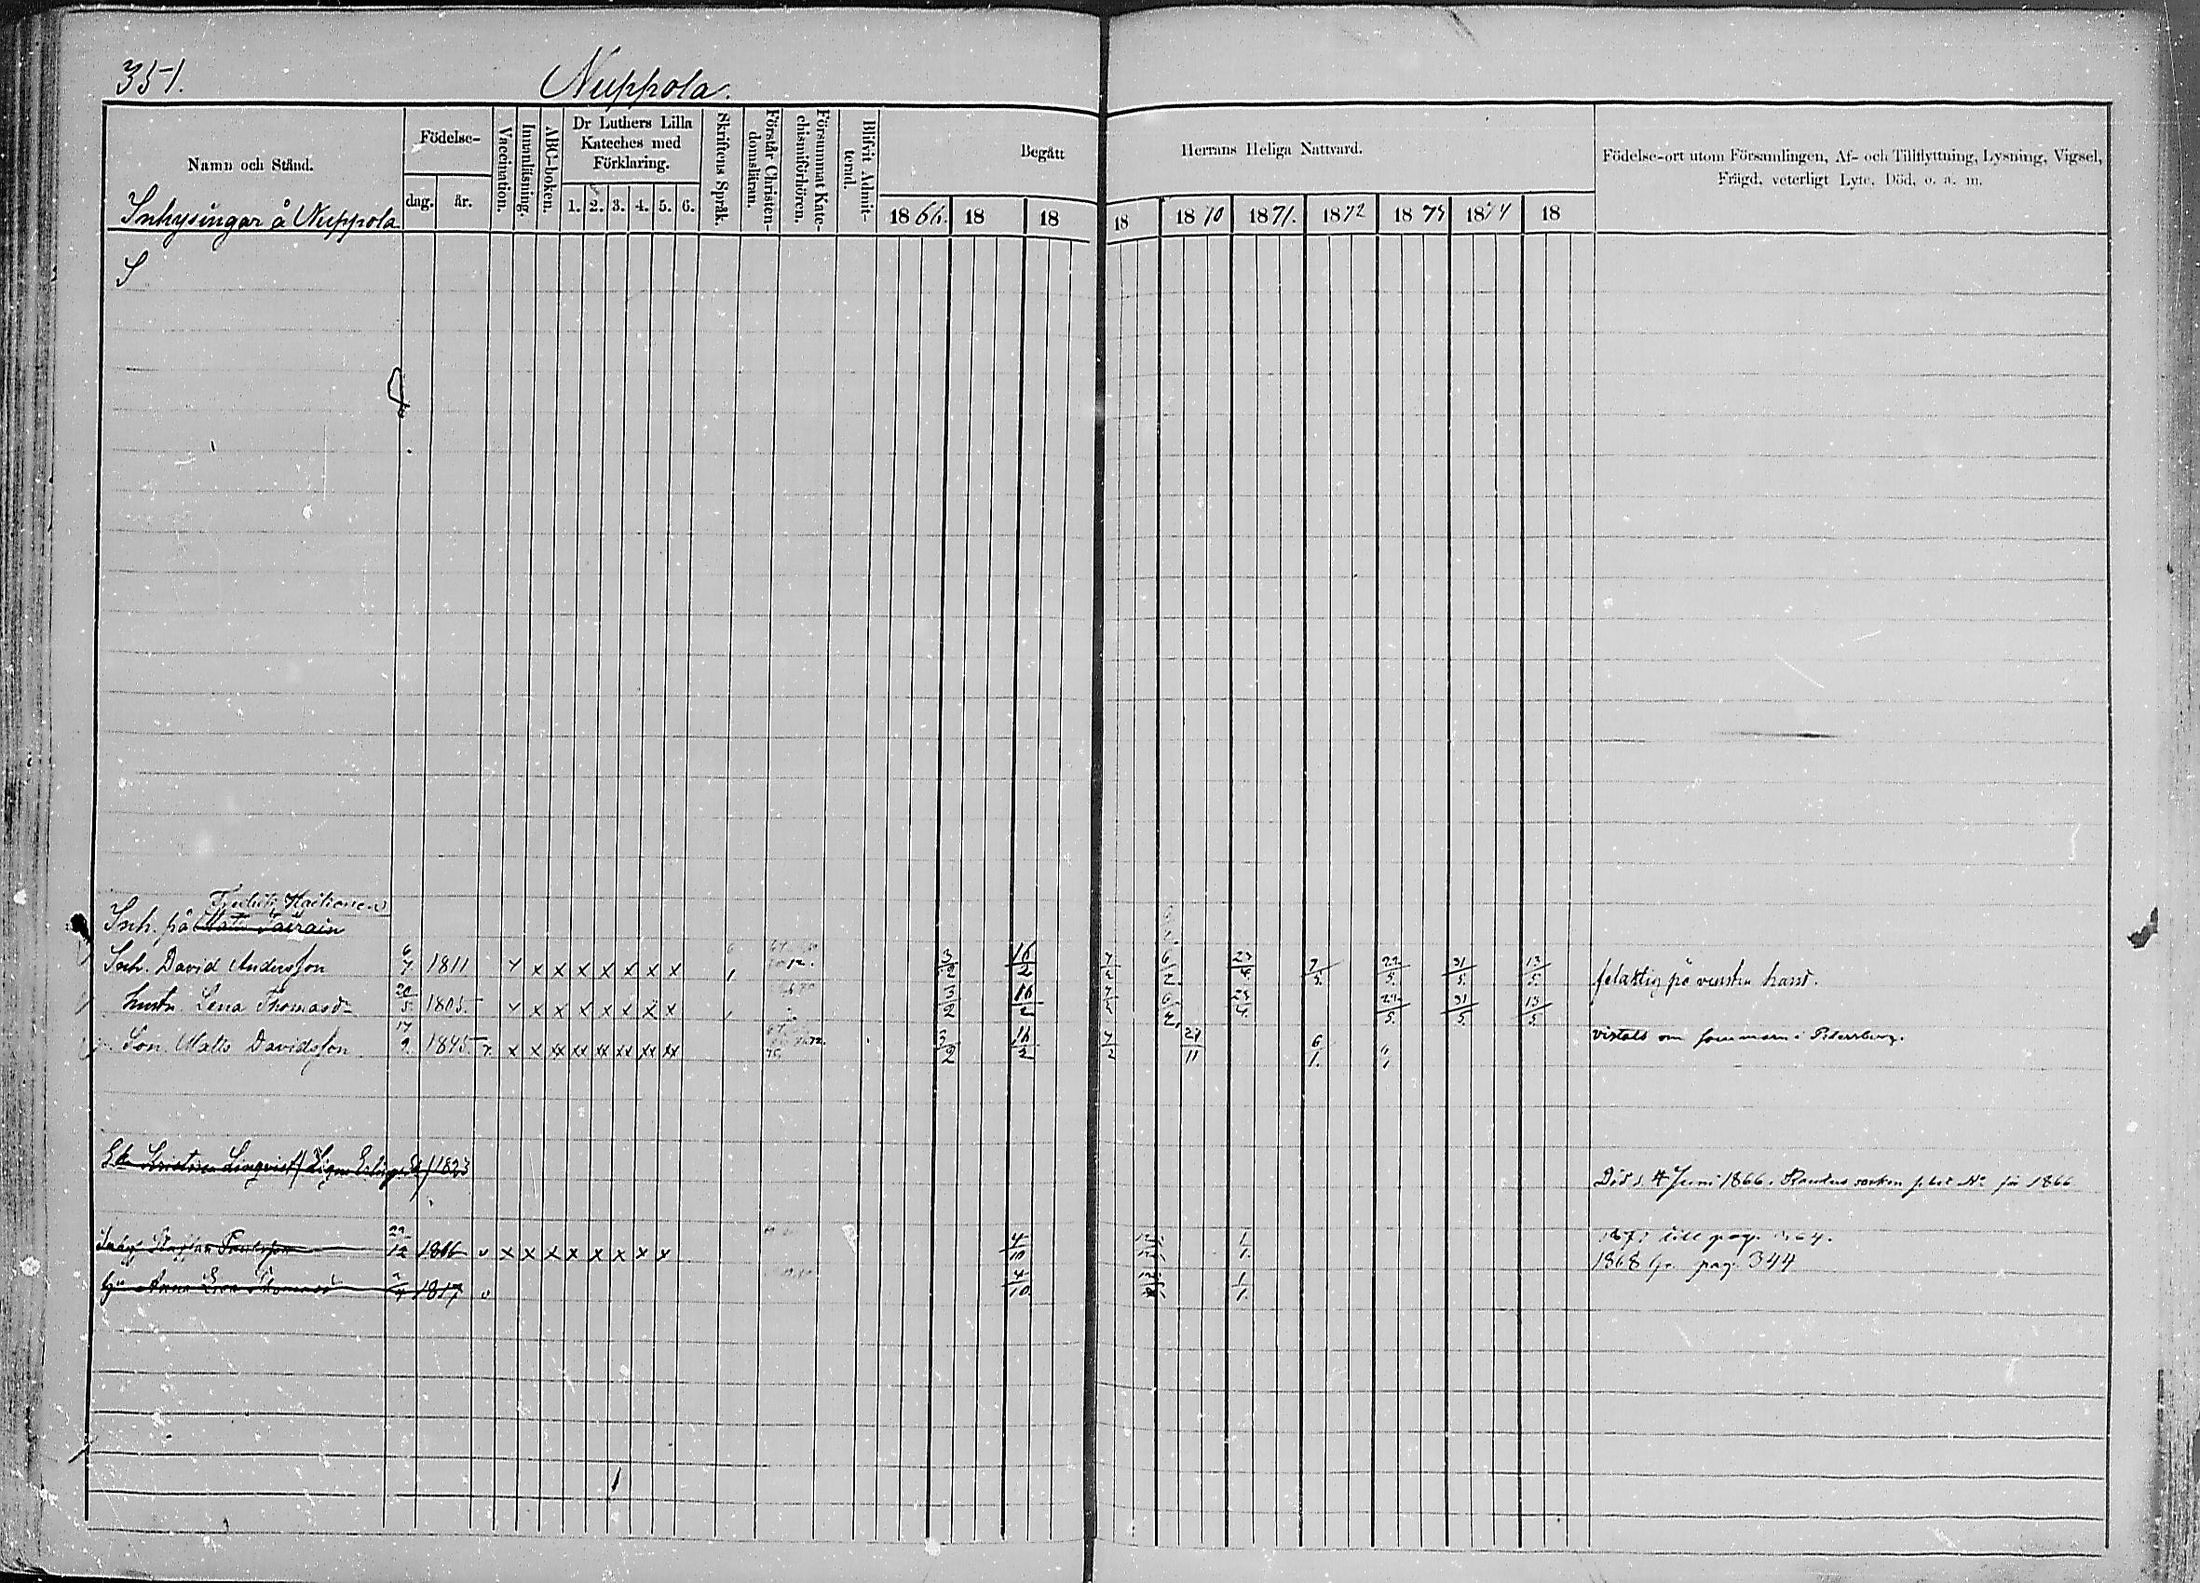 351.
Nuppola.
Namn och Stånd.
Födelse-
dag. år.
Vaccination.
Innanläsning.
ABC-boken.
Dr Luthers Lilla Kateches med Förklaring.
1. 2. 3. 4. 5. 6.
Skriftens Språk.
Förstår Christendomsläran.
Försummat Katechismiförhören.
Blifvit Admitterad.
Begått Herrans Heliga Nattvard.
1866. 18 18 18 1870 1871. 1872 1873 1874 18
Födelse-ort utom Församlingen, Af- och Tillflyttning, Lysning, Vigsel,
Frägd, veterligt Lyte, Död, o. a. m.
Inhysingar å Nuppola
Inh. på
Inh. David Andersson 6/7 1811 3/2 16/2 7/2 6/2 23/4 7/5. 22/5. 31/5. 13/5. felaktig på venstra hand.
hustr. Lena Thomasd- 20/5. 1805. 3/2 16/2 7/2 6/2. 23/4. 22/5. 31/5. 13/5.
Son Matts Davidsson 17/9. 1845 3/2 16/2 7/2 27/11 6/1. vistats om sommarn i Petersburg.
1823 Död d. 4 Juni 1866. för 1866
Inhys Staffan 12 1816 v x x x x x x x x 4/10 1/1. till pag.
Anna Thomasd 1817 v 4/10 1/1. 1868 fr. pag. 344